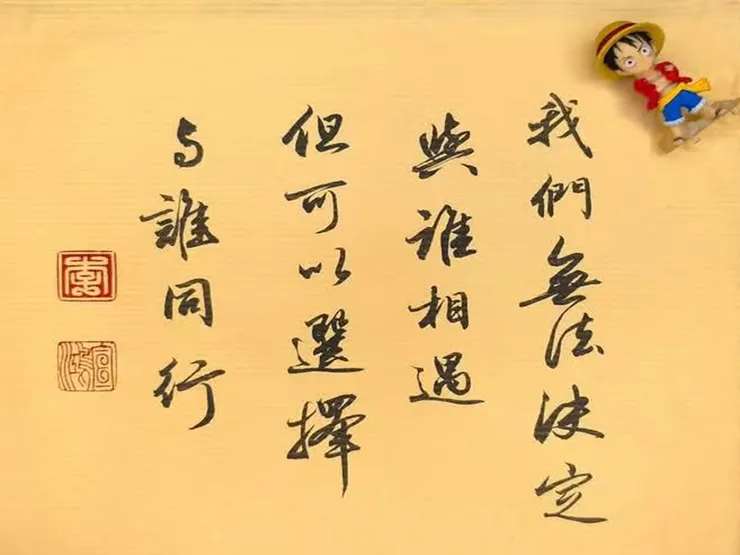 我們無法决定
與誰相遇
但可以選擇
与誰同行
李